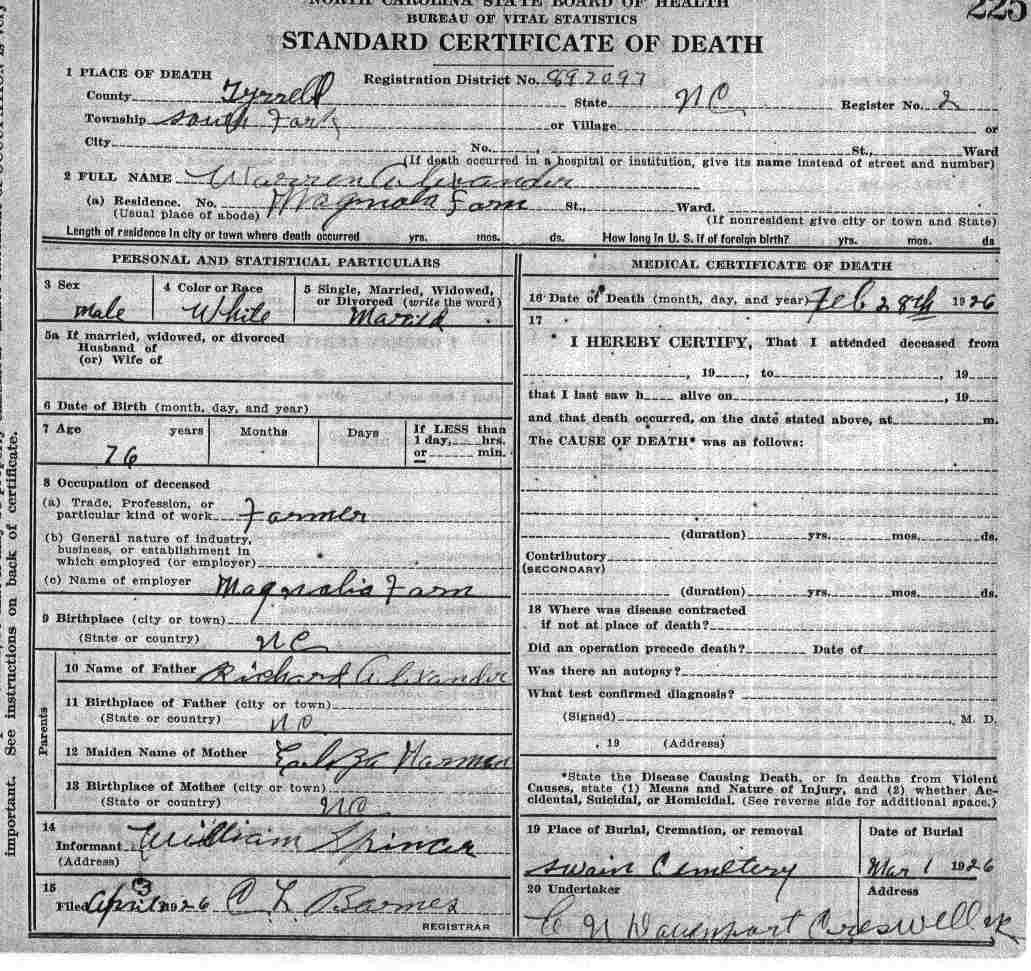 NORTH CAROLINA STATE BOARD OF HEALTH
BUREAU OF VITAL STATISTICS
225
STANDARD CERTIFICATE OF DEATH
1 PLACE OF DEATH
Registration District No. 892097
County Tyrrell State NC Register No. 2
Township South Fork or Village or
City No. , St., Ward
(If death occurred in a hospital or institution, give its name instead of street and number)
2 FULL NAME Warren Alexander
(a) Residence. No. Magnolia Farm St., Ward.
(Usual place of abode) (If nonresident give city or town and State)
Length of residence in city or town where death occurred yrs. mos. ds. How long in U. S. if of foreign birth? yrs. mos. ds
PERSONAL AND STATISTICAL PARTICULARS
3 Sex
male
4 Color or Race
White
5 Single, Married, Widowed,
or Divorced (write the word)
Married
5a If married, widowed, or divorced
Husband of
(or) Wife of
6 Date of Birth (month, day, and year)
7 Age years Months Days If LESS than
1 day, hrs.
or min.
76
8 Occupation of deceased
(a) Trade, Profession, or
particular kind of work Farmer
(b) General nature of industry,
business, or establishment in
which employed (or employer)
(c) Name of employer Magnolia Farm
9 Birthplace (city or town)
(State or country) NC
Parents
10 Name of Father Richard Alexander
11 Birthplace of Father (city or town)
(State or country) NC
12 Maiden Name of Mother
13 Birthplace of Mother (city or town)
(State or country) NC
14
Informant William Spincer
(Address)
15
Filed April 3 1926 C L Barnes
REGISTRAR
MEDICAL CERTIFICATE OF DEATH
16 Date of Death (month, day, and year) Feb 28th 1926
17
I HEREBY CERTIFY, That I attended deceased from
, 19 , to , 19
that I last saw h alive on , 19
and that death occurred, on the date stated above, at m.
The CAUSE OF DEATH* was as follows:
(duration) yrs. mos. ds.
Contributory
(SECONDARY)
(duration) yrs. mos. ds.
18 Where was disease contracted
if not at place of death?
Did an operation precede death? Date of
Was there an autopsy?
What test confirmed diagnosis?
(Signed) , M. D.
, 19 (Address)
*State the Disease Causing Death, or in deaths from Violent
Causes, state (1) Means and Nature of Injury, and (2) whether Ac-
cidental, Suicidal, or Homicidal. (See reverse side for additional space.)
19 Place of Burial, Cremation, or removal
Swain Cemetery
Date of Burial
Mar 1 1926
20 Undertaker
C N Davenport
Address
Creswell
important. See instructions on back of certificate.